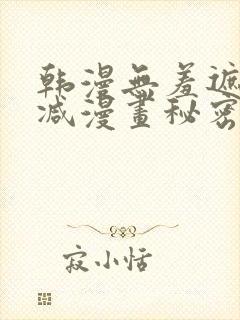 韩漫无羞遮
减漫畫秘密
寂小恬